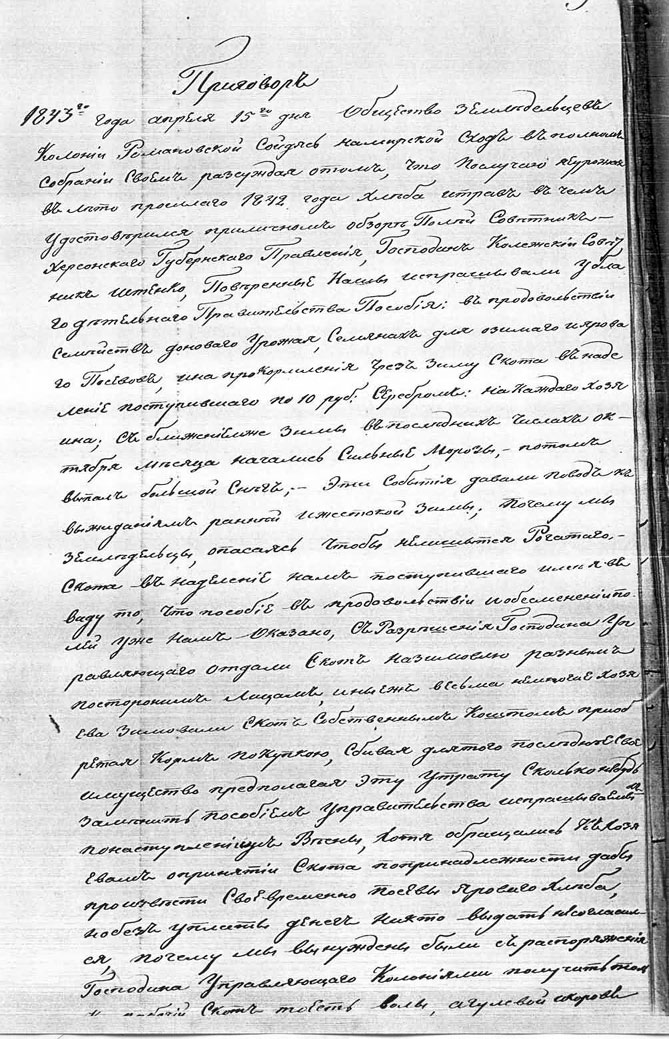 Приговоръ
1843го года апреля 15го дня Общество Земледельцевъ
Колоніи Романовской Сойдясь намирской Сходъ въ полномъ
Собраніи Своемъ разсуждая отомъ, что Послучаю неурожая
въ лѣто прошлаго 1842 года хлѣба итравъ въ чемъ
удостовѣрился приличномъ обзорѣ Полей Совѣтникъ
Херсонскаго Губернскаго Правленія, Господинъ Колежскій Совѣт
никъ Повѣренные Нашы испрашывали у бла
годѣтельнаго Правительства Пособія: въ продовольствіи
Семействъ доноваго Урожая, Семянахъ для озимаго иярова
го Посѣвовъ, ина прокормленія чрезъ Зиму Скота въ наде
леніе поступившаго по 10 руб: Серебромъ: на Каждаго Хозя
ина; Съ ближеніемже Зимы въ последнихъ числахъ ок-
тября мѣсяца начались Сильные Морозы, - потомъ
выпалъ большой Снѣгъ; - Эти Событія давали поводъ къ
выжиданіямъ ранней ижестокой Зимы; Почему мы
Земледельцы, опасаясь чтобы нелишытся Рогатаго.-
Скота въ наделеніе намъ поступившаго имея въ
виду то, что пособіе въ продовольствіи иобсемененіи по-
лей уже намъ Оказано, Съ Разрешенія Господина Уп
равляющаго отдали Скотъ назимовлю разнымъ
постороннимъ Лицамъ, иныежъ весьма немногие хозя
ева Зимовали Скотъ Собственнымъ Коштомъ приоб
рѣтая Кормъ поКупкою, Сбивая длятого последнее Свое
имущество предполагая эту утрату Сколько нибудь
Заменить пособіемъ управительства испрашываемымъ
понаступленіижъ Весны, Хотя обращались Къ Хозя
евамъ опринятіи Скота попринадлежности дабы
произвѣсти Своевременно посевы Яроваго Хлѣба,
нобезъ уплаты денегъ никто выдать несогласил
ся, почему мы вынуждены были съ распоряженія
Господина Управляющаго Колоніями получить
Скотъ тоесть волы, агулевой икоровъ